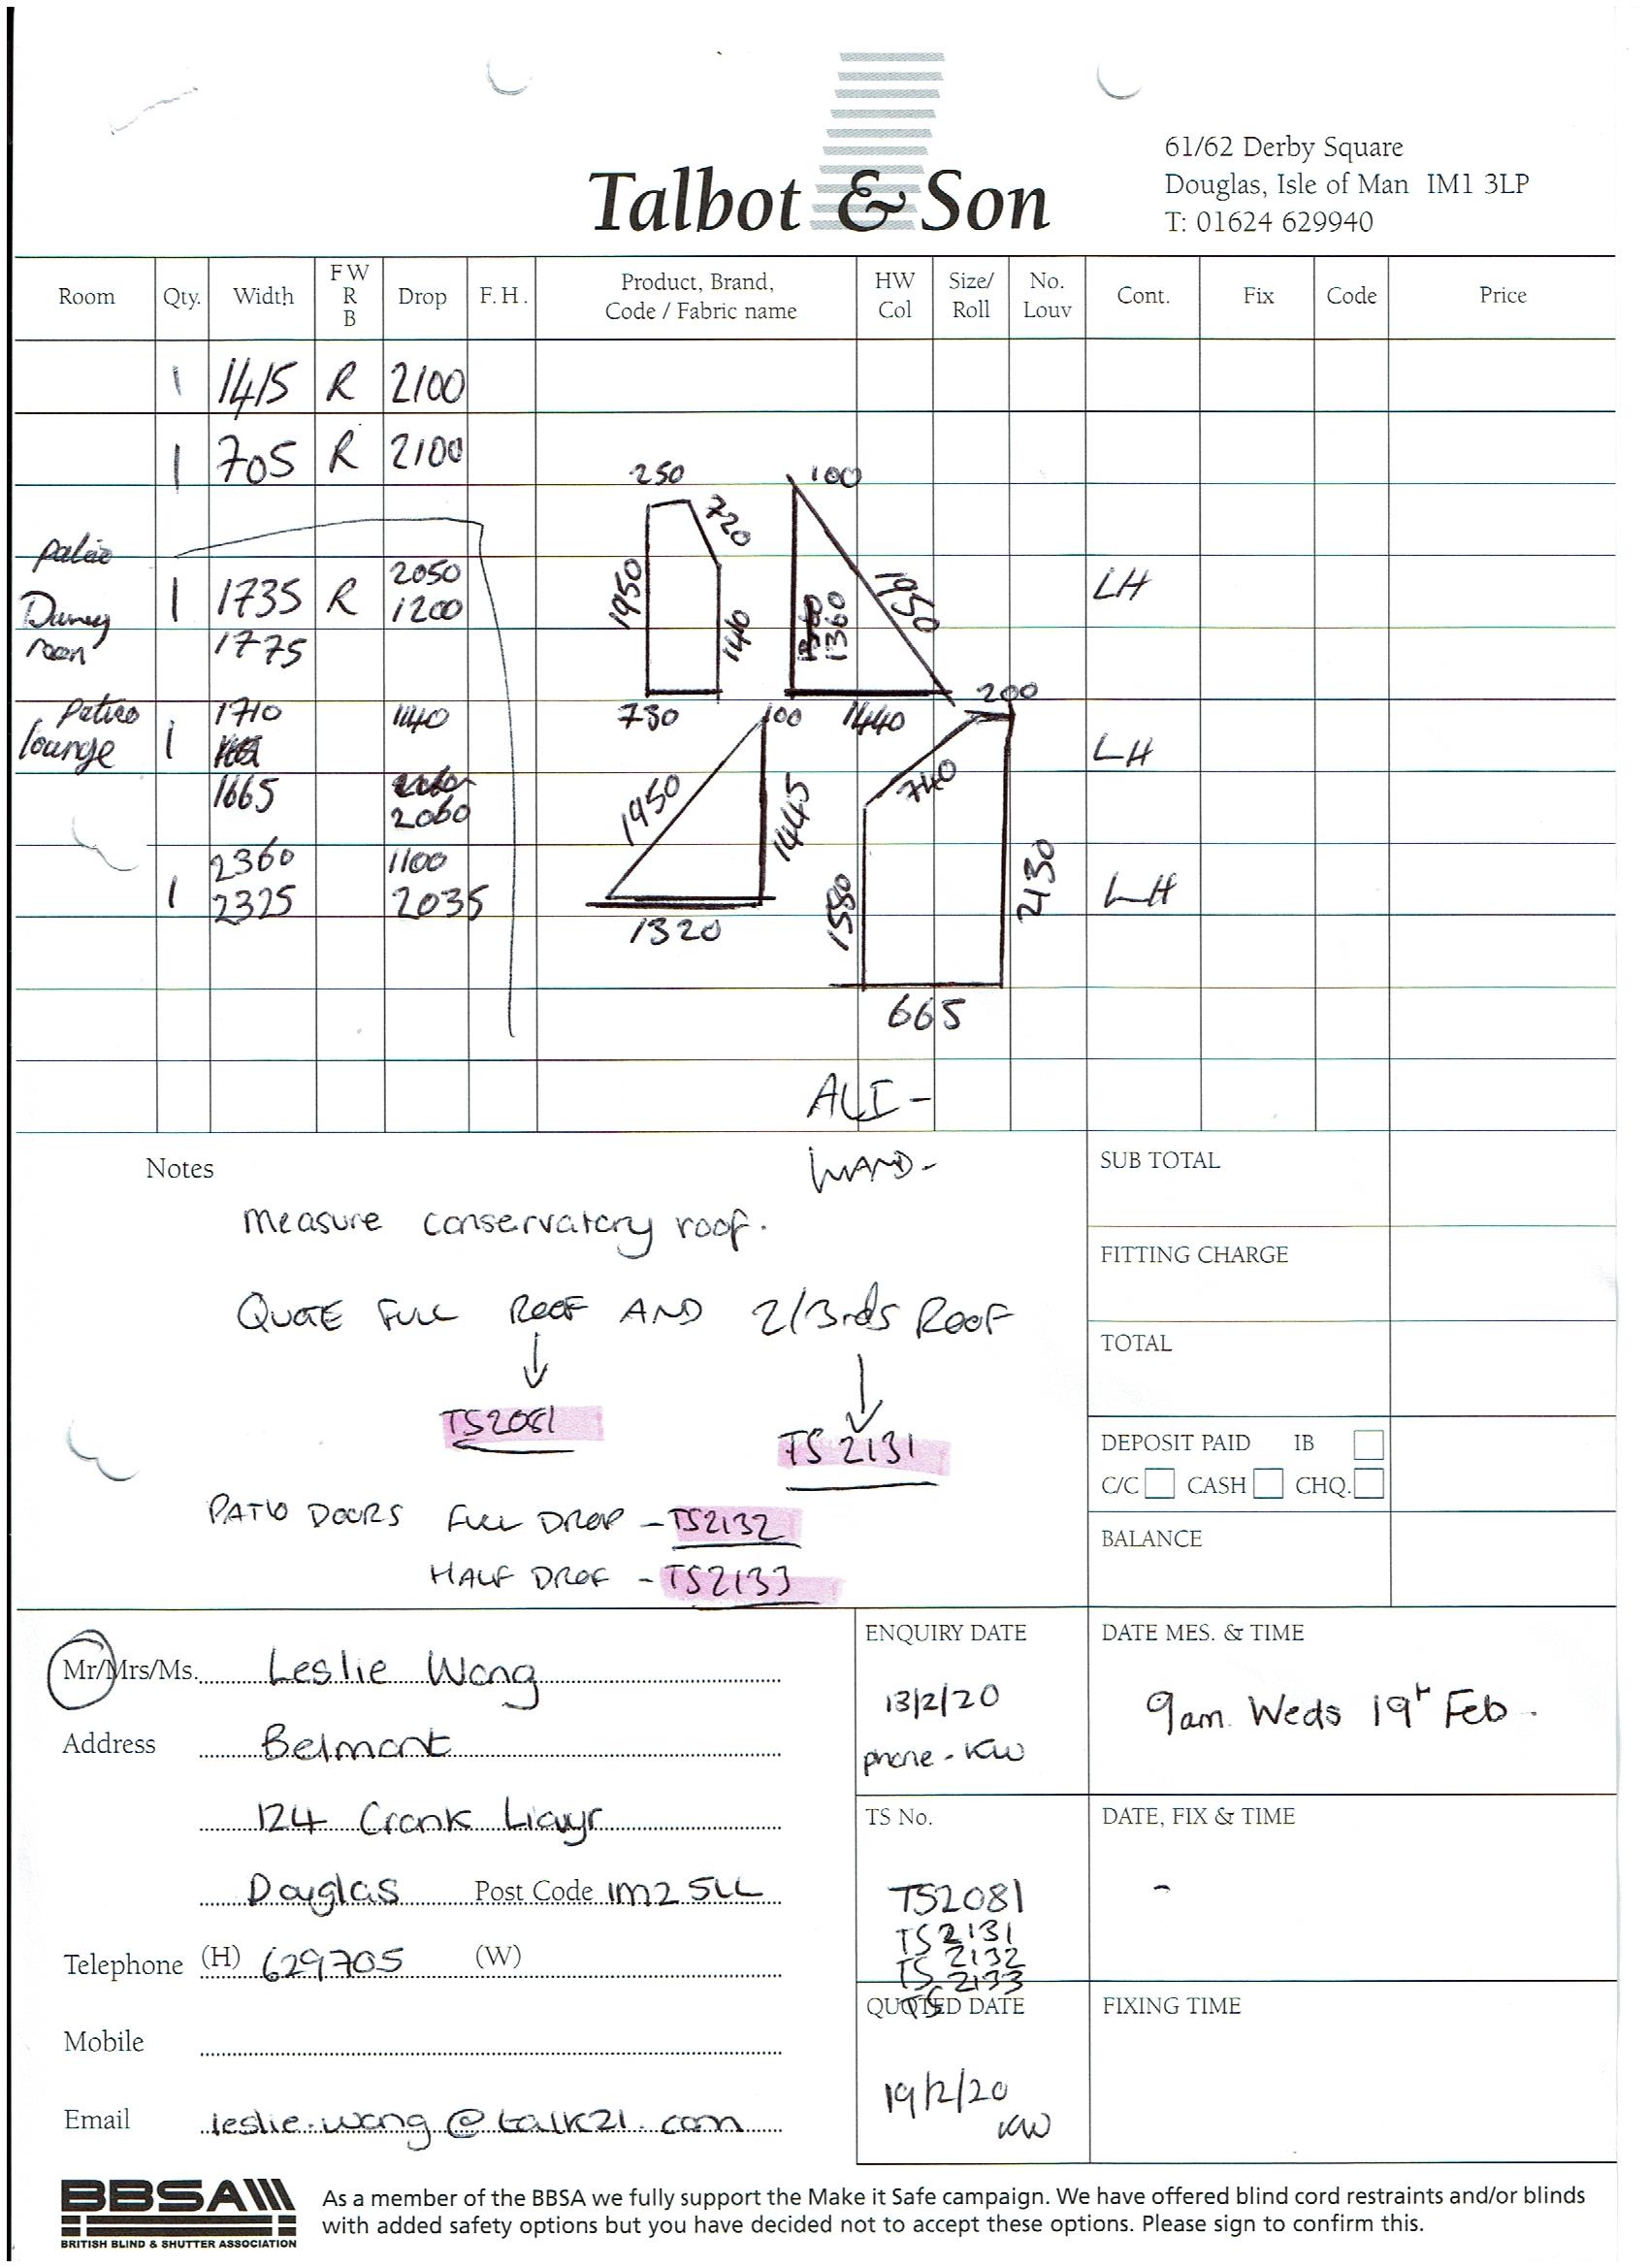 Talbot & Son
61/62 Derby Square
Douglas, Isle of Man IM1 3LP
T: 01624 629940
Room Qty. Width F W R B Drop F. H. Product, Brand, Code / Fabric name HW Col Size/ Roll No. Louv Cont. Fix Code Price
1 1415 R 2100
1 705 R 2100
250 720 1950 140 730
100 1950 1360 1440
1 1735 R 2050 LH
1200
1775
room
1710 1140
lounge 1 LH
1665
2060
2360 1100
1 2325 2035 LH
100 1950 1445 1320
200 740 1580 2130 665
ALI -
WAND -
Notes
Measure conservatory roof.
QUOTE FULL ROOF AND 2/3rds ROOF
TS2081
TS 2131
PATIO DOORS FULL DROP - TS2132
HALF DROP - TS2133
SUB TOTAL
FITTING CHARGE
TOTAL
DEPOSIT PAID IB
C/C CASH CHQ.
BALANCE
Mr/Mrs/Ms. Leslie Wong
Address Belmont
124 Cronk Liauyr
Douglas Post Code IM2 5LL
Telephone (H) 629705 (W)
Mobile
Email leslie.wong@talk21.com
ENQUIRY DATE
13/2/20
phone - KW
DATE MES. & TIME
9am Weds 19th Feb.
TS No.
TS2081
TS 2131
TS 2132
TS 2133
TS
DATE, FIX & TIME
-
QUOTED DATE
19/2/20
KW
FIXING TIME
BBSA
BRITISH BLIND & SHUTTER ASSOCIATION
As a member of the BBSA we fully support the Make it Safe campaign. We have offered blind cord restraints and/or blinds
with added safety options but you have decided not to accept these options. Please sign to confirm this.